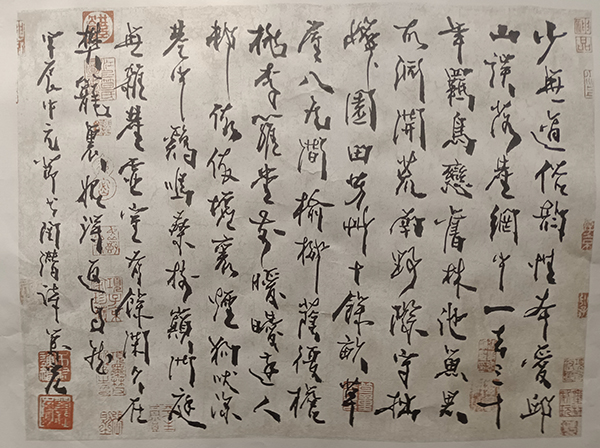 少無適俗韵性本愛邱
山誤落塵網中一去三十
年羈鳥戀舊林池魚思
故淵開荒南野際守拙
歸園田方宅十餘畝草
屋八九間榆柳蔭後檐
桃李羅堂前曖曖遠人
村依依墟裏煙狗吠深
巷中鷄鳴桑樹巔戶庭
無雜塵虛室有餘閑久在
樊籠裏復得返自然
甲辰中元節書陶潛詩